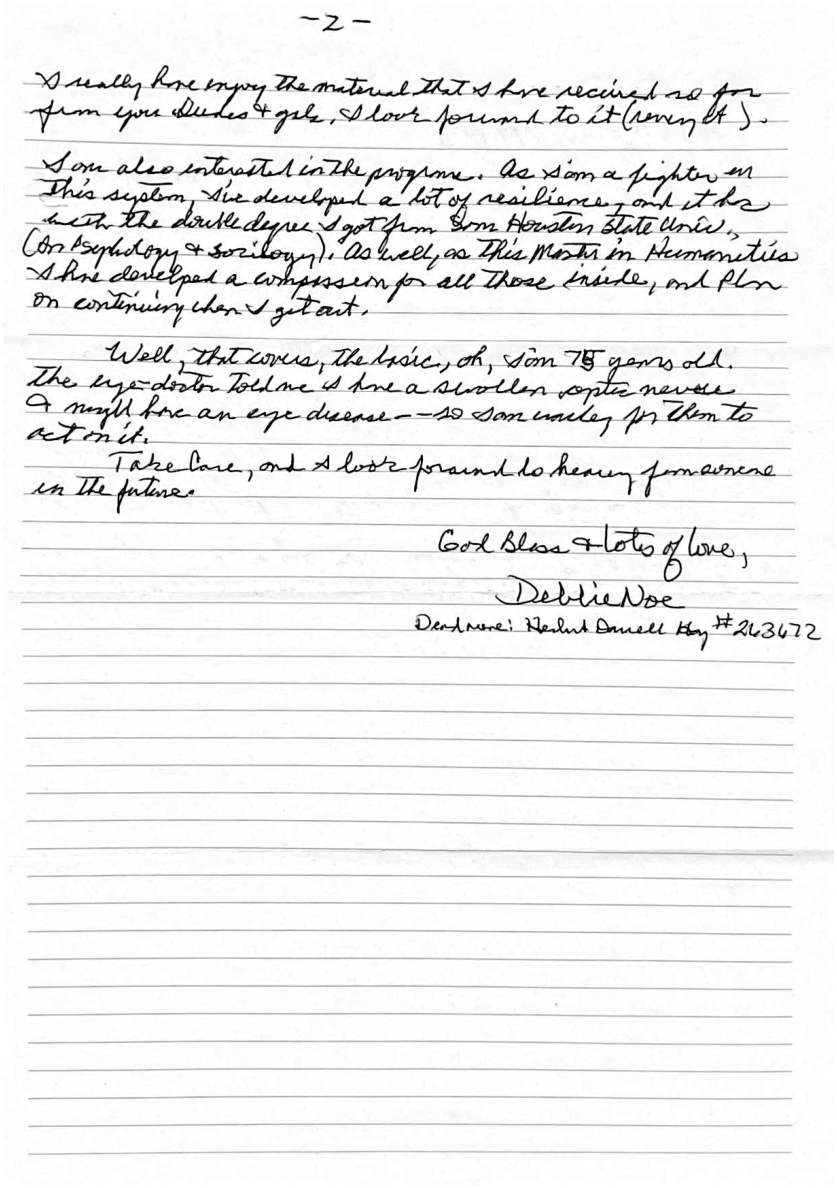 - 2 -
I really have enjoy the material that I have received so far
from you Dudes & gals, I look forward to it (receiving it).
I am also interested in the programe. As I'am a fighter in
this system, I've developed a lot of resilience, and it has
with the double degree I got from Sam Houston State Univ.,
(On Psychology & Sociology). As well, as this Master in Humanities
I have developed a compassion for all those inside, and Plan
on continuing when I get out.
Well, that covers, the basic, oh, I'am 75 years old.
The eye-doctor told me I have a swollen optic nerve
& might have an eye disease -- so I am waiting for them to
act on it.
Take Care, and I look forward to hearing from someone
in the future.
God Bless & lots of love,
Debbie Noe
Deadname: Herbert Darnell #263672